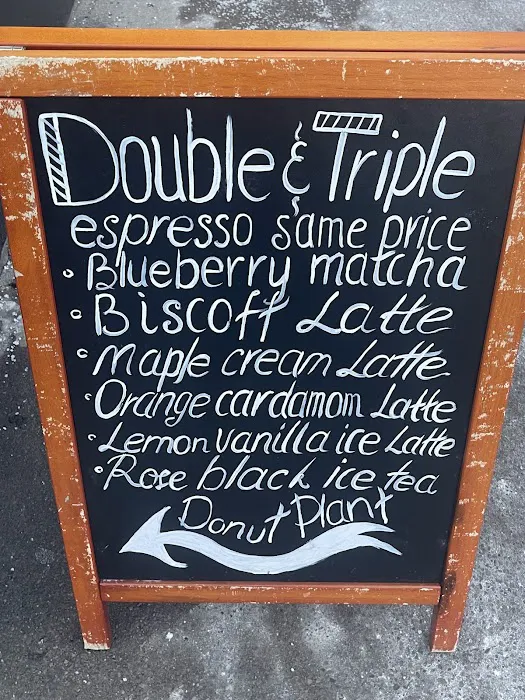 Double & Triple
espresso same price
• Blueberry matcha
• Biscoff Latte
• Maple cream Latte
• Orange cardamom Latte
• Lemon vanilla ice Latte
• Rose black ice tea
Donut Plant